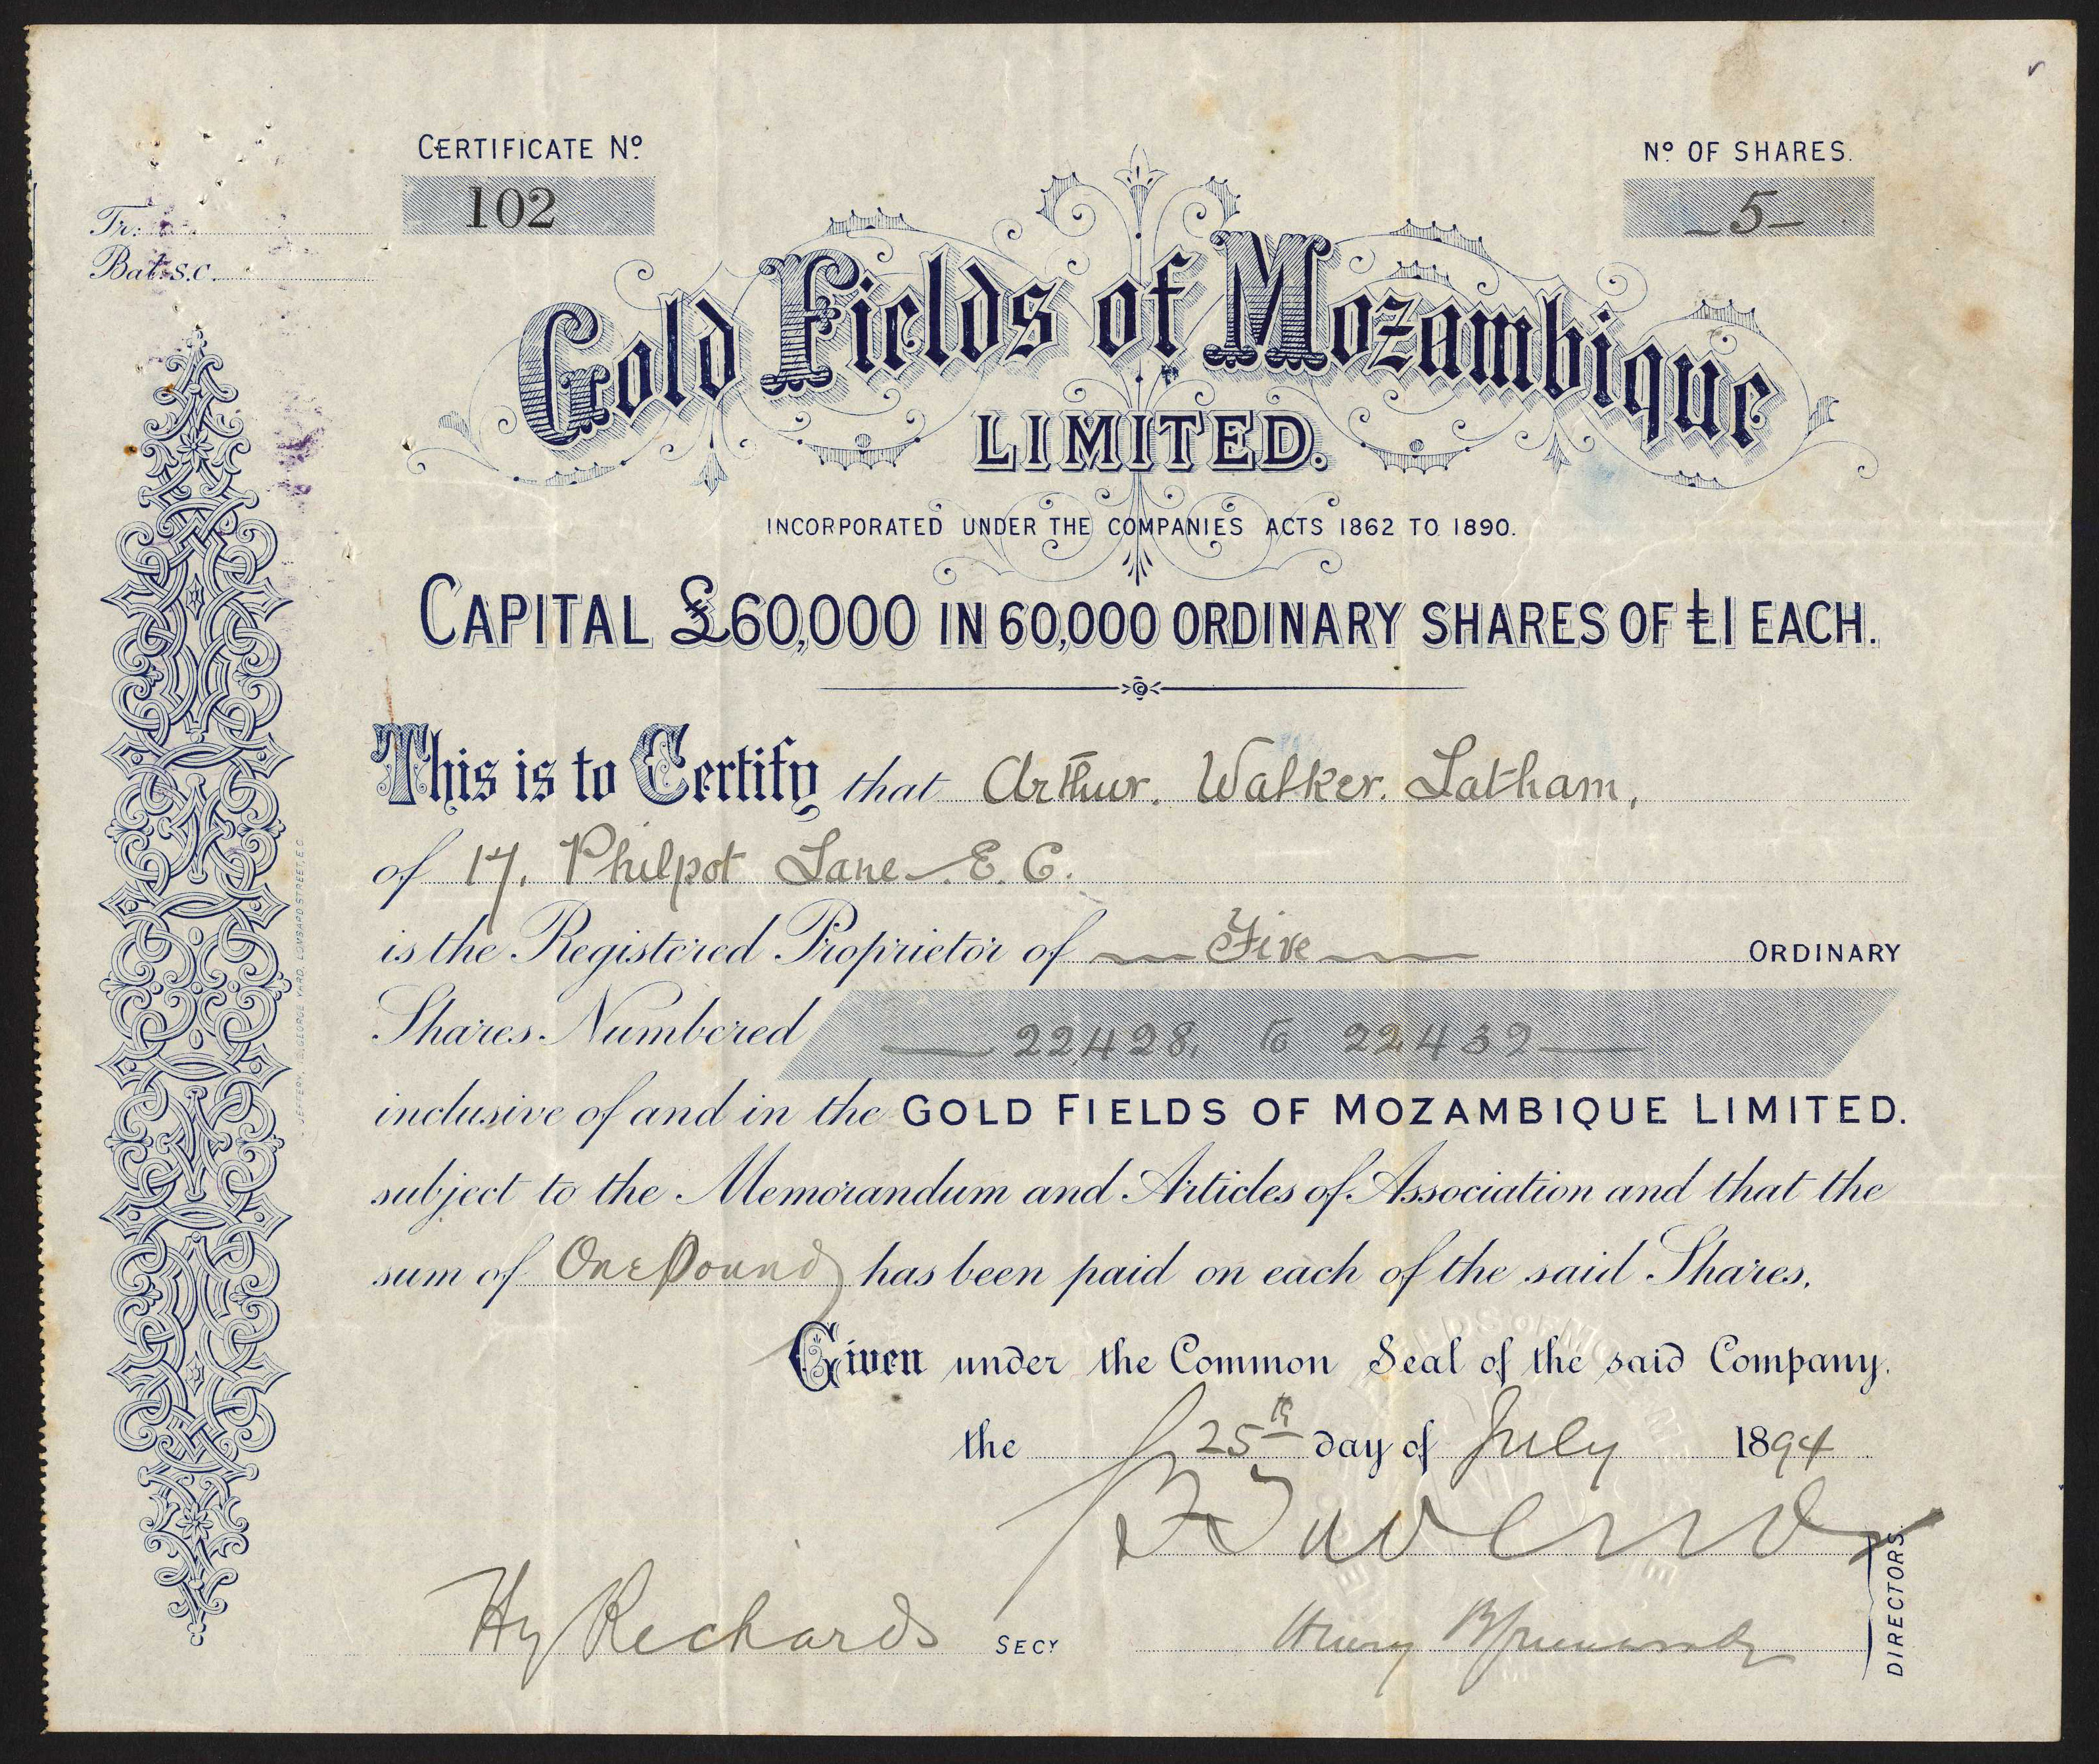 CERTIFICATE Nº
102
Nº OF SHARES.
5
Tr:
Bal: S.C.
Gold Fields of Mozambique
LIMITED.
INCORPORATED UNDER THE COMPANIES ACTS 1862 TO 1890.
CAPITAL £60,000 IN 60,000 ORDINARY SHARES OF £1 EACH.
This is to Certify that Arthur. Walker. Latham,
of 17, Philpot Lane E.C.
is the Registered Proprietor of Five ORDINARY
Shares Numbered 22428, to 22432
inclusive of and in the GOLD FIELDS OF MOZAMBIQUE LIMITED.
subject to the Memorandum and Articles of Association and that the
sum of One Pound has been paid on each of the said Shares.
Given under the Common Seal of the said Company.
the 25th day of July 1894
Hy Richards SECY
Henry
DIRECTORS.
JEFFERY, GEORGE YARD, LOMBARD STREET, E.C.